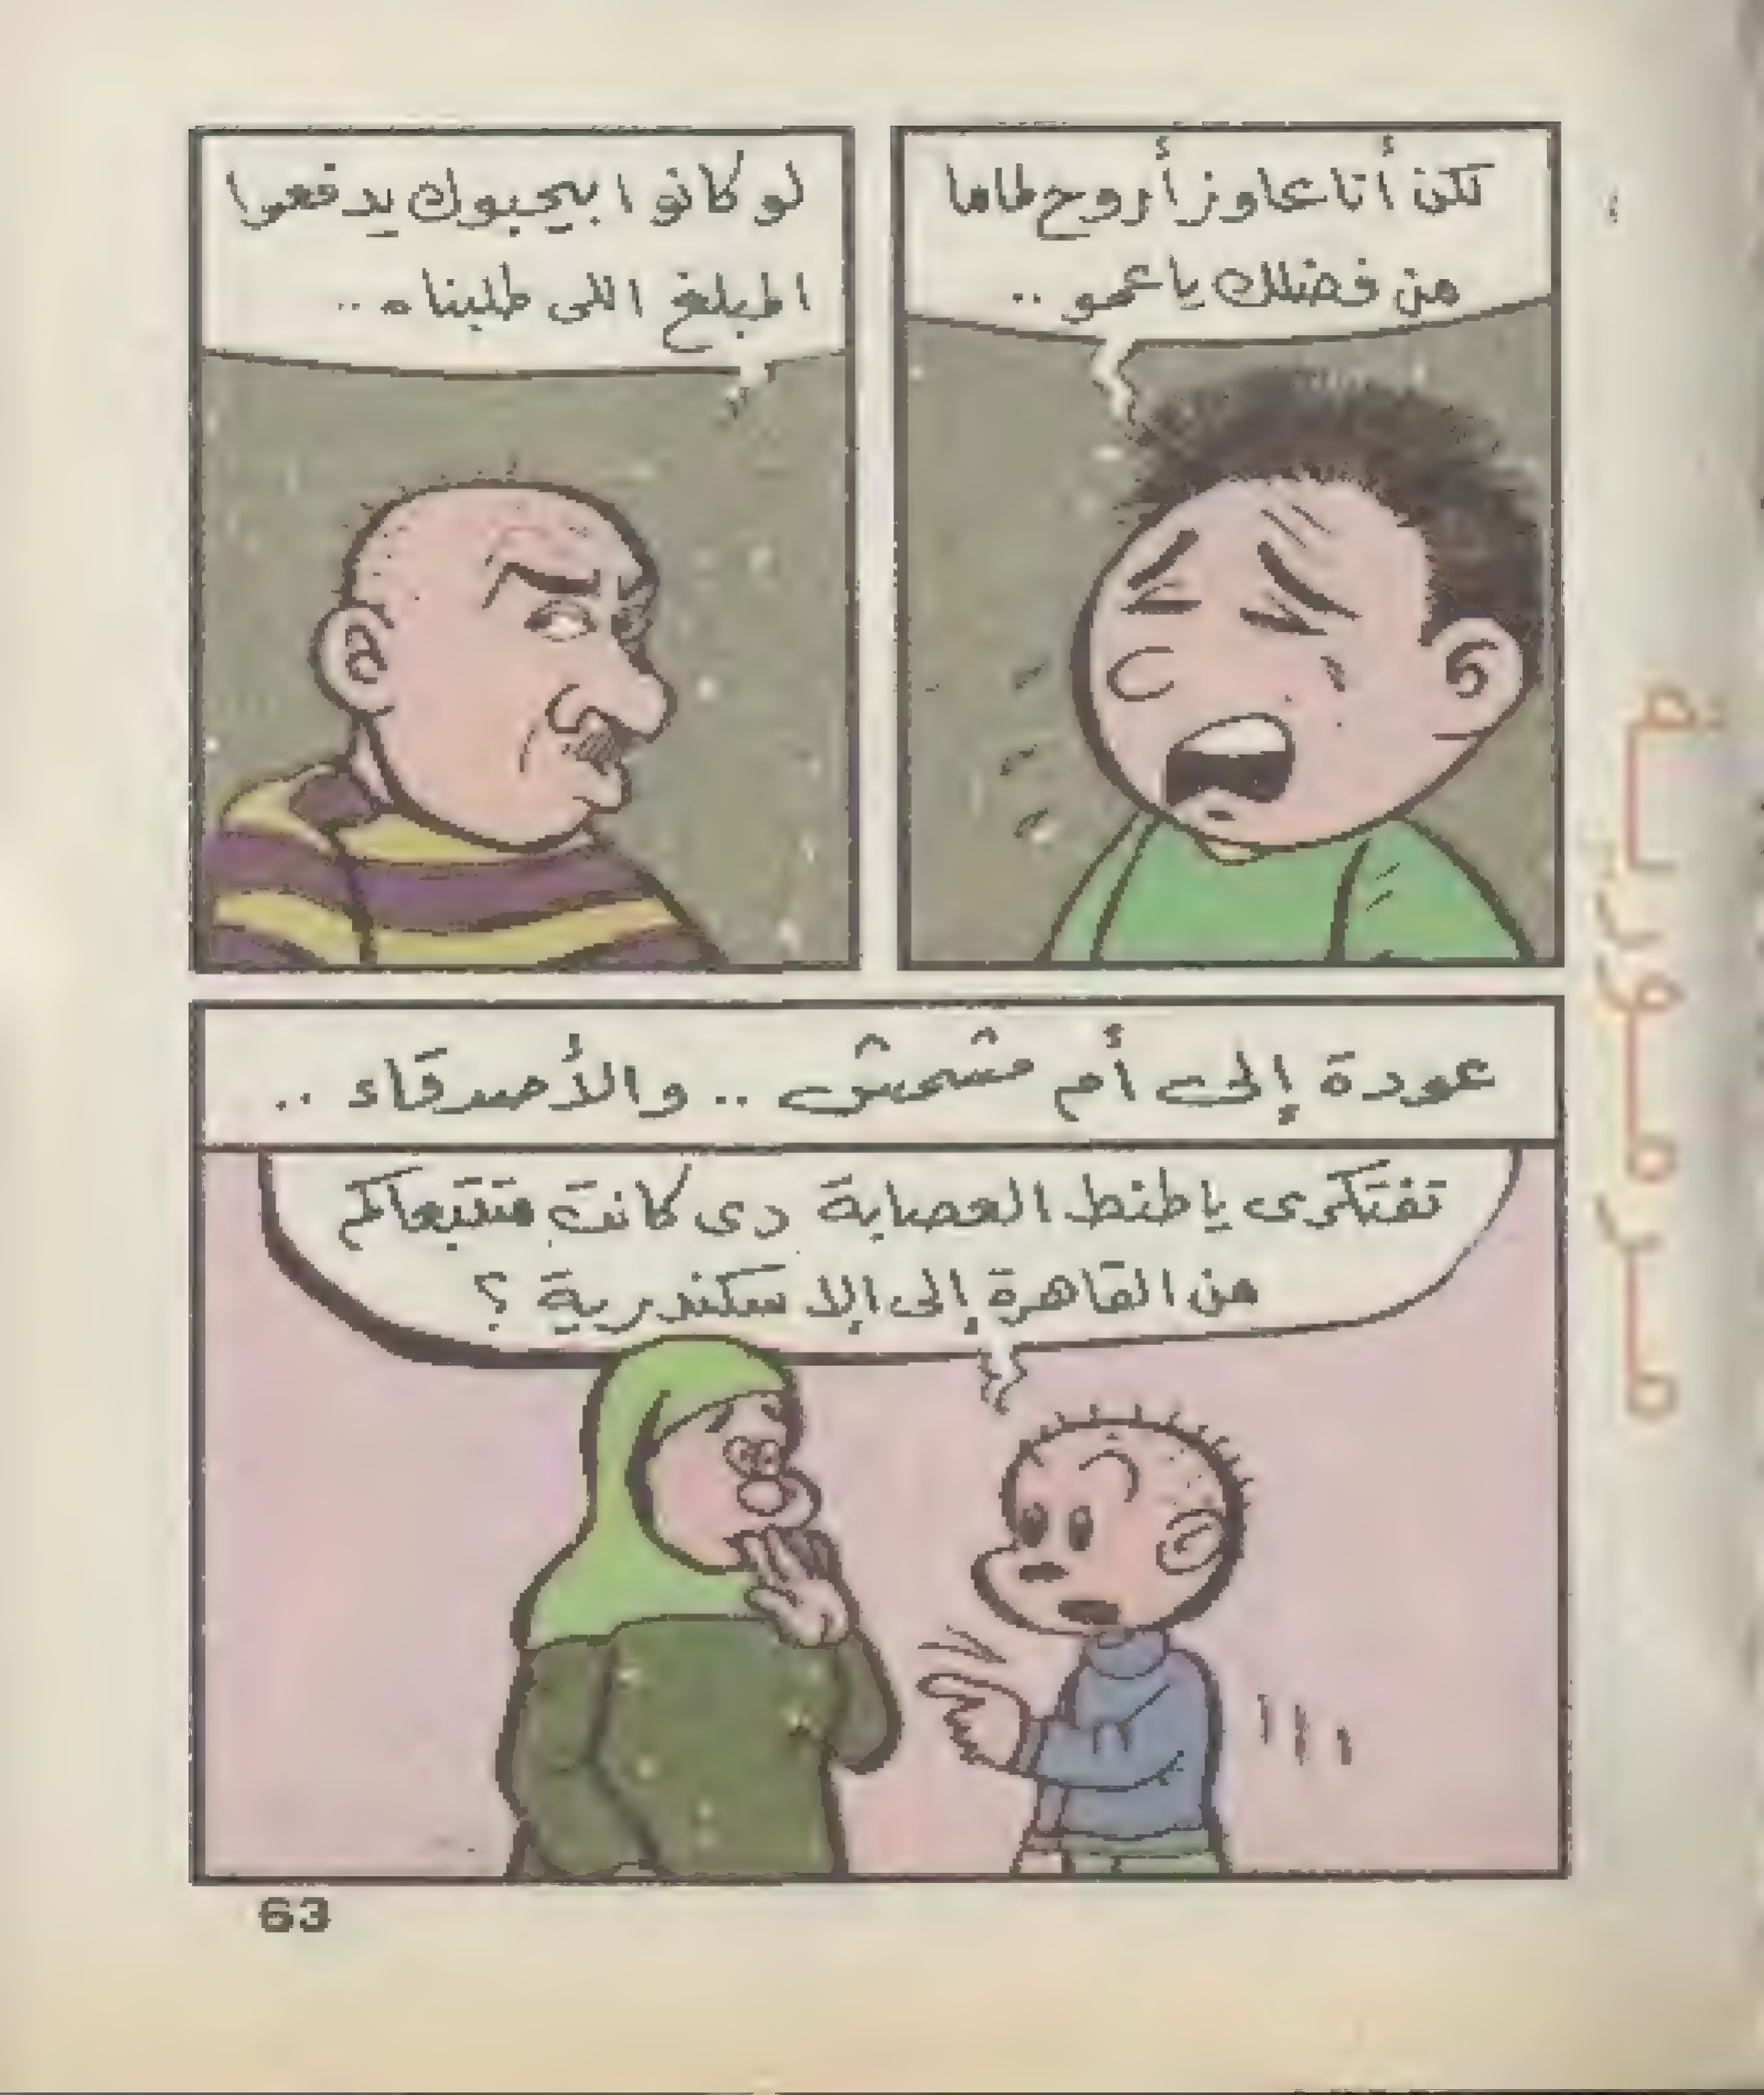 لكن أنا عاوز أروح لماما
من فضلك يا عمو ..
لو كانوا بيحبوك يدفعوا
المبلغ اللى طلبناه ..
عودة إلى أم مشمش .. والأصدقاء ..
تفتكرى يا طنط العصابة دى كانت متتبعاكم
من القاهرة إلى الإسكندرية ؟
63